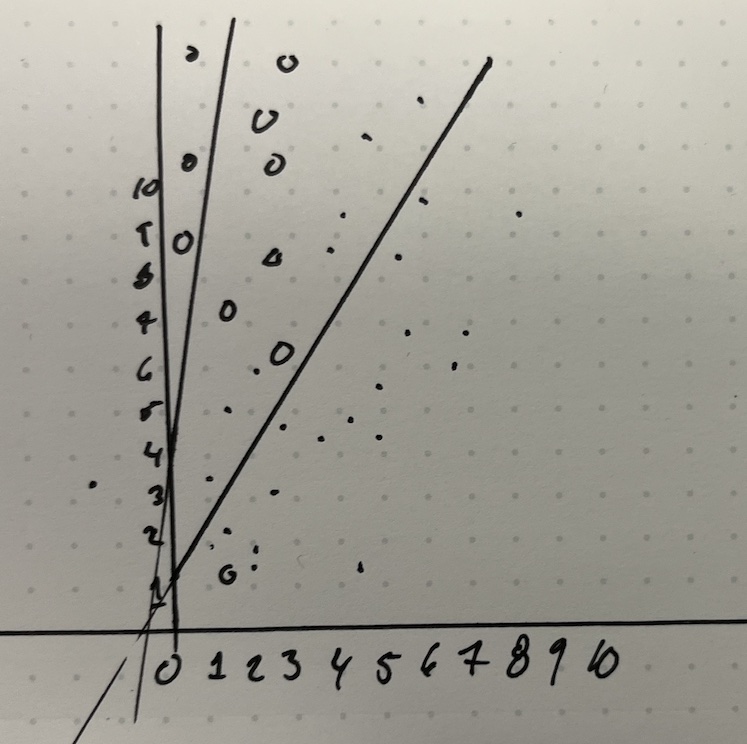 10
9
8
7
6
5
4
3
2
1
0 1 2 3 4 5 6 7 8 9 10